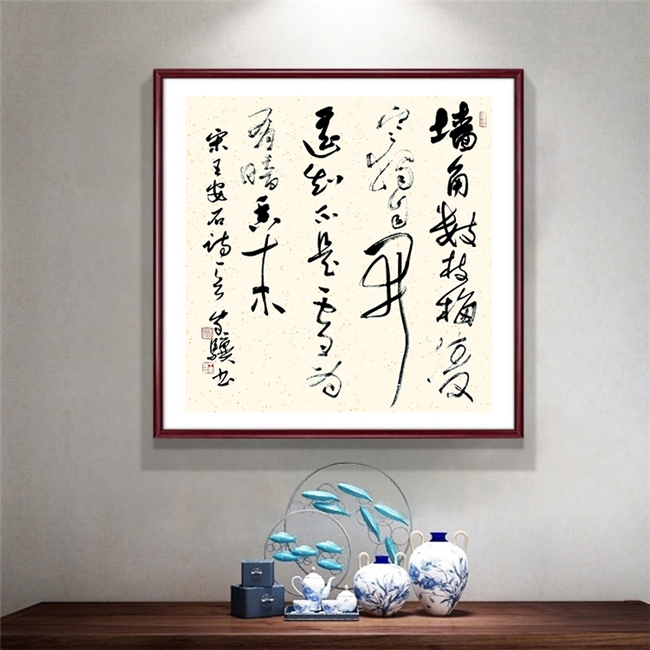 墙角数枝梅凌
寒独自开
遥知不是雪为
有暗香来
宋王安石诗一首 骥书